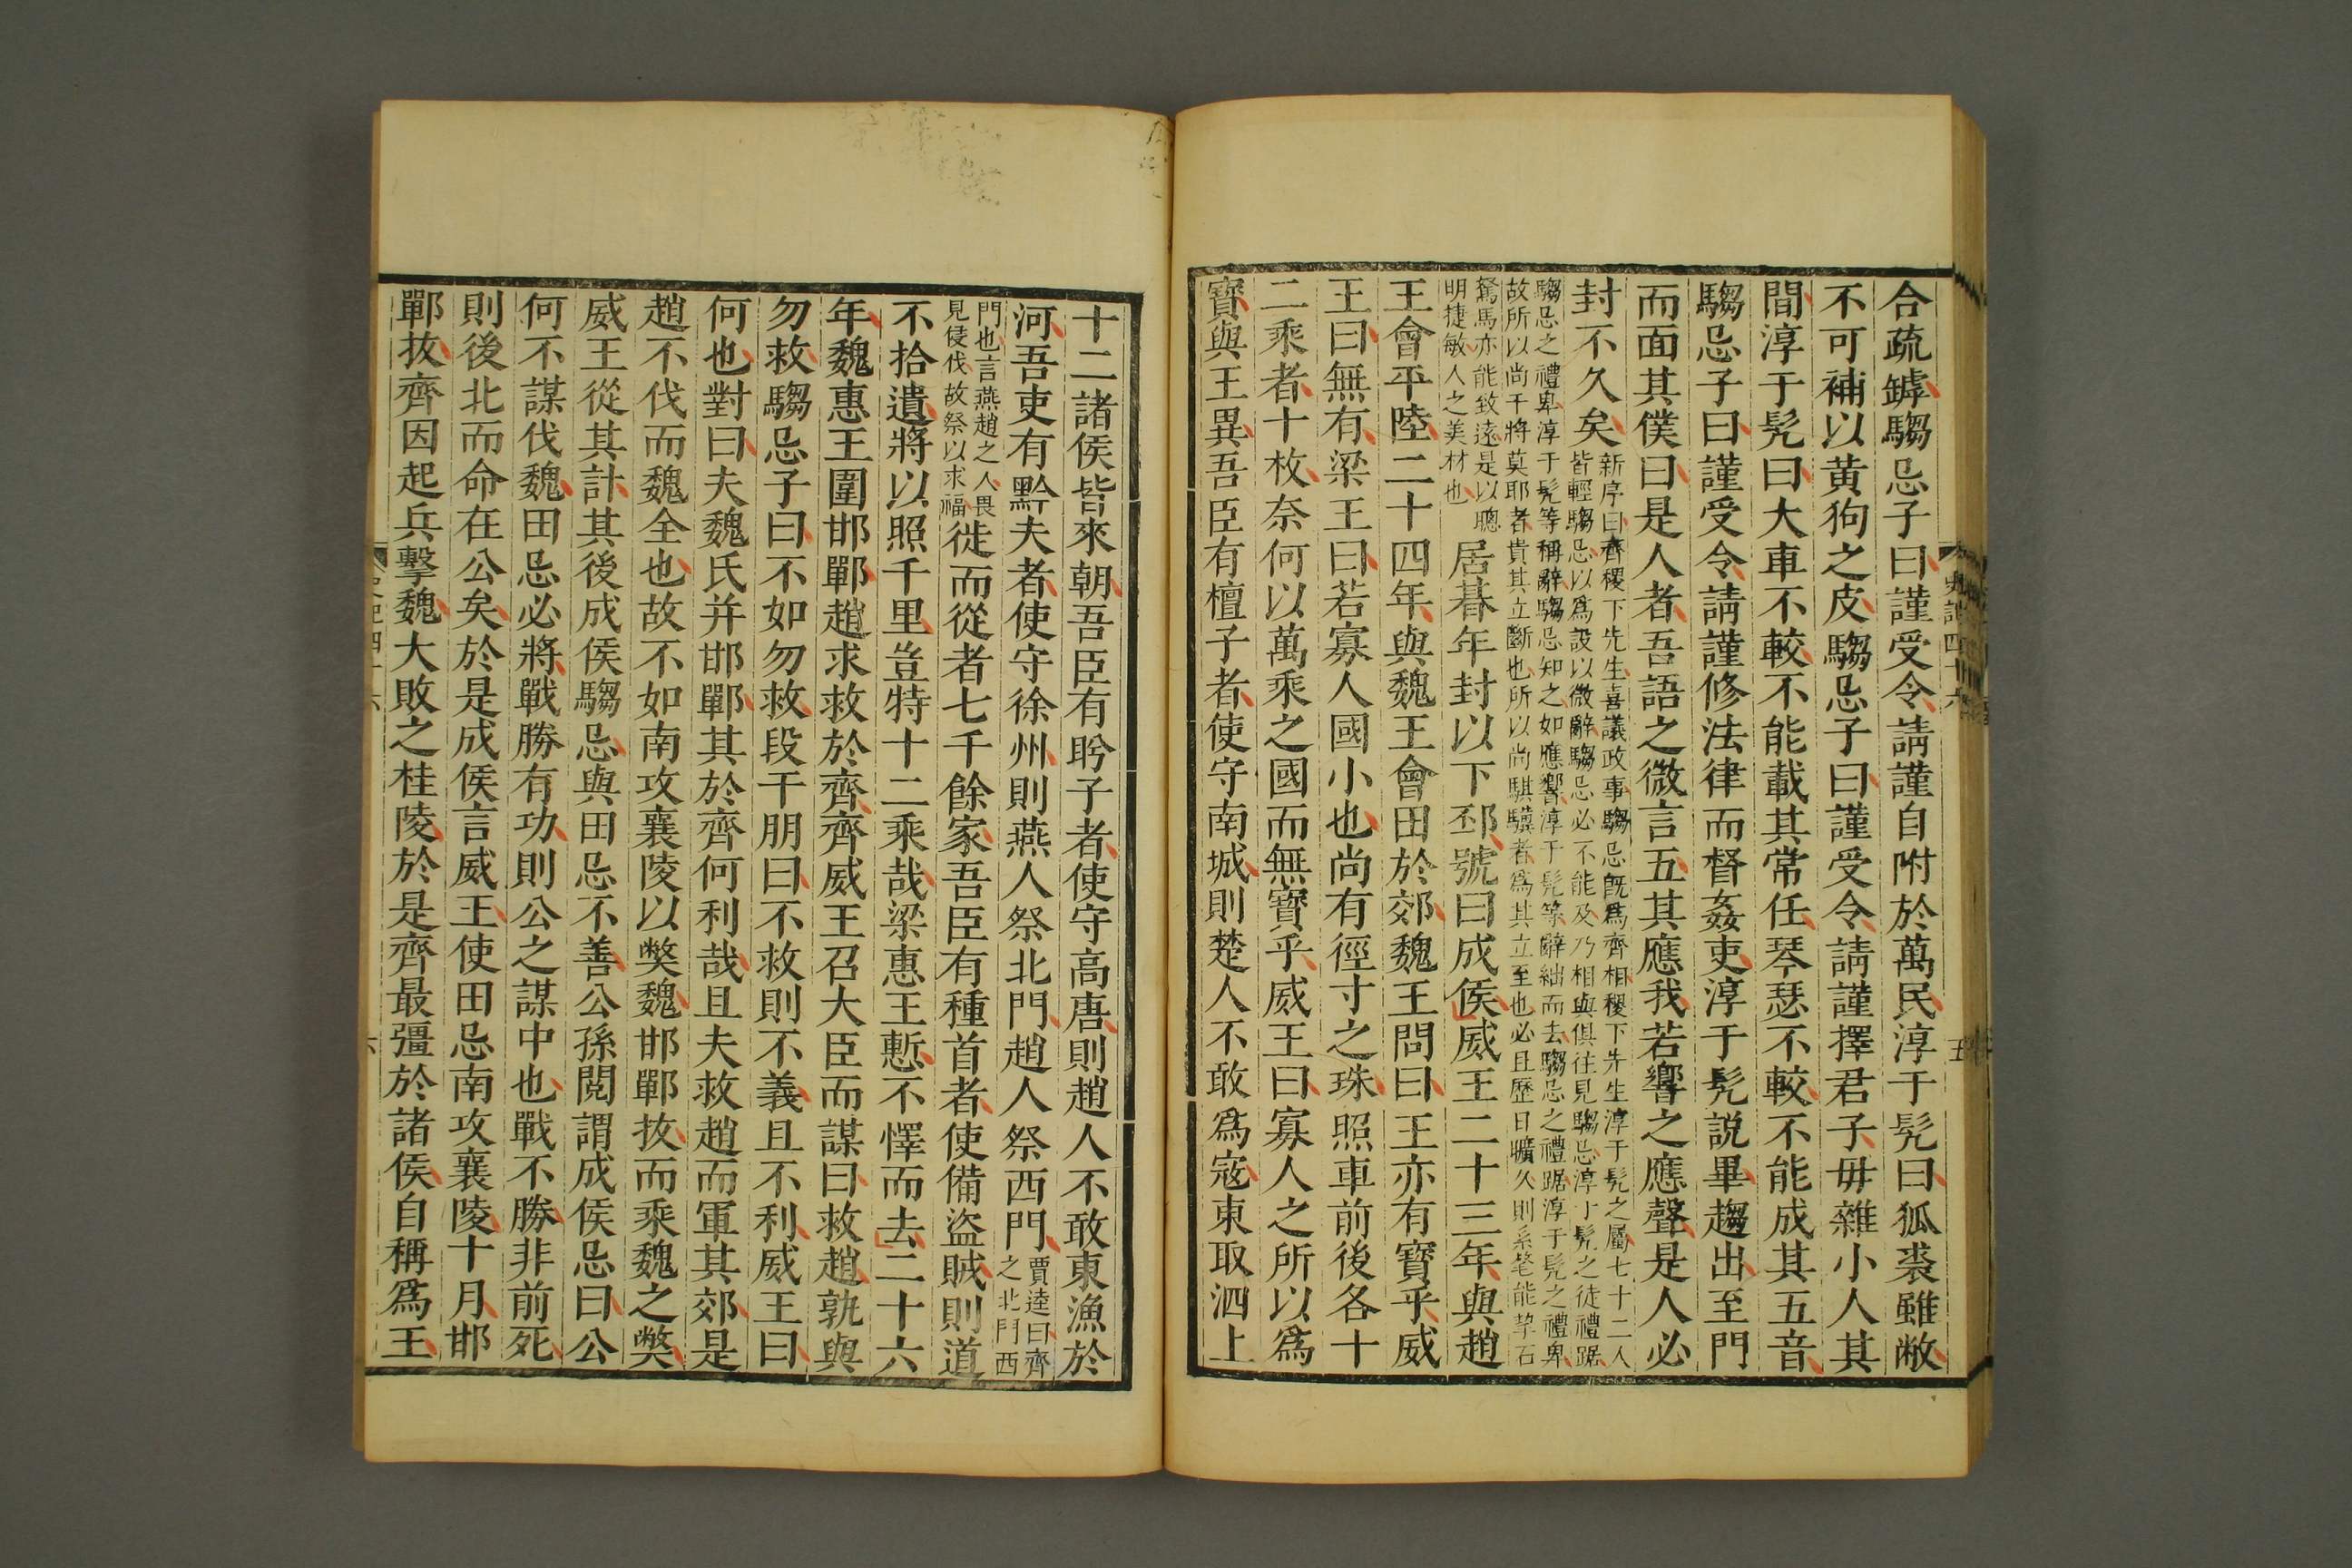 合疏罅騶忌子曰謹受令請謹自附於萬民淳于髡曰狐裘雖敝
不可補以黃狗之皮騶忌子曰謹受令請謹擇君子毋雜小人其
間淳于髡曰大車不較不能載其常任琴瑟不較不能成其五音
騶忌子曰謹受令請謹修法律而督姦吏淳于髡說畢趨出至門
而面其僕曰是人者吾語之微言五其應我若響之應聲是人必
封不久矣
新序曰齊稷下先生喜議政事騶忌旣爲齊相稷下先生淳于髡之屬七十二人
皆輕騶忌以爲設以微辭騶忌必不能及乃相與俱往見騶忌淳于髡之徒禮踞
騶忌之禮卑淳于髡等稱辭騶忌知之如應響淳于髡等辭絀而去騶忌之禮踞淳于髡之禮卑
故所以尚干將莫耶者貴其立斷也所以尚騏驥者爲其立至也必且歷日曠久則系氂能挈石
駑馬亦能致遠是以聰
明捷敏人之美材也
居朞年封以下邳號曰成侯威王二十三年與趙
王會平陸二十四年與魏王會田於郊魏王問曰王亦有寶乎威
王曰無有梁王曰若寡人國小也尚有徑寸之珠照車前後各十
二乘者十枚奈何以萬乘之國而無寶乎威王曰寡人之所以爲
寶與王異吾臣有檀子者使守南城則楚人不敢爲寇東取泗上
史記四十六
五
十二諸侯皆來朝吾臣有盻子者使守高唐則趙人不敢東漁於
河吾吏有黔夫者使守徐州則燕人祭北門趙人祭西門
賈逵曰齊
之北門西
門也言燕趙之人畏
見侵伐故祭以求福
徙而從者七千餘家吾臣有種首者使備盜賊則道
不拾遺將以照千里豈特十二乘哉梁惠王慙不懌而去二十六
年魏惠王圍邯鄲趙求救於齊齊威王召大臣而謀曰救趙孰與
勿救騶忌子曰不如勿救段干朋曰不救則不義且不利威王曰
何也對曰夫魏氏并邯鄲其於齊何利哉且夫救趙而軍其郊是
趙不伐而魏全也故不如南攻襄陵以獘魏邯鄲拔而乘魏之獘
威王從其計其後成侯騶忌與田忌不善公孫閱謂成侯忌曰公
何不謀伐魏田忌必將戰勝有功則公之謀中也戰不勝非前死
則後北而命在公矣於是成侯言威王使田忌南攻襄陵十月邯
鄲拔齊因起兵擊魏大敗之桂陵於是齊最彊於諸侯自稱爲王